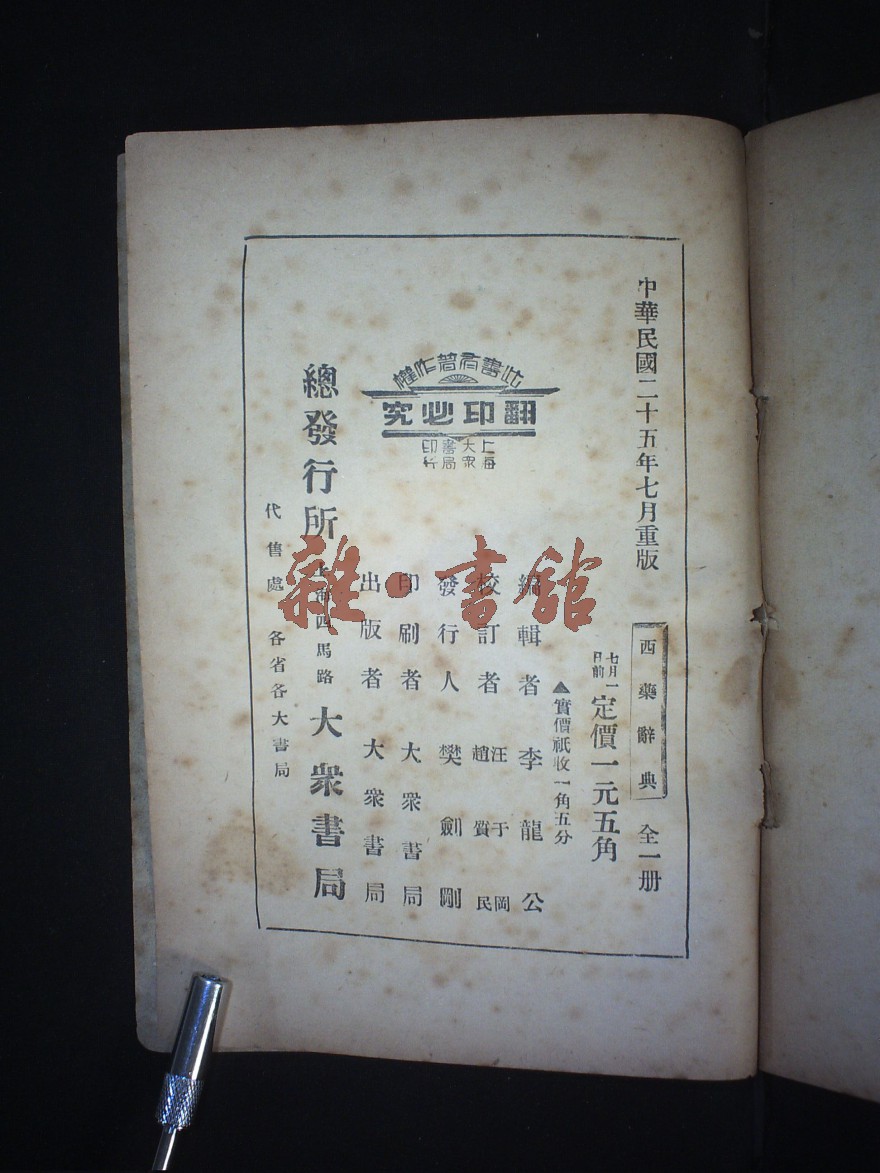 中華民國二十五年七月重版
西藥辭典 全一册
七月一日前 定價一元五角
▲實價祇收一角五分
編輯者 李龍公
校訂者 汪于岡 趙質民
發行人 樊劍剛
印刷者 大衆書局
出版者 大衆書局
此書有著作權
翻印必究
上海大衆書局印行
總發行所 上海四馬路 大衆書局
代售處 各省各大書局
雜·書館